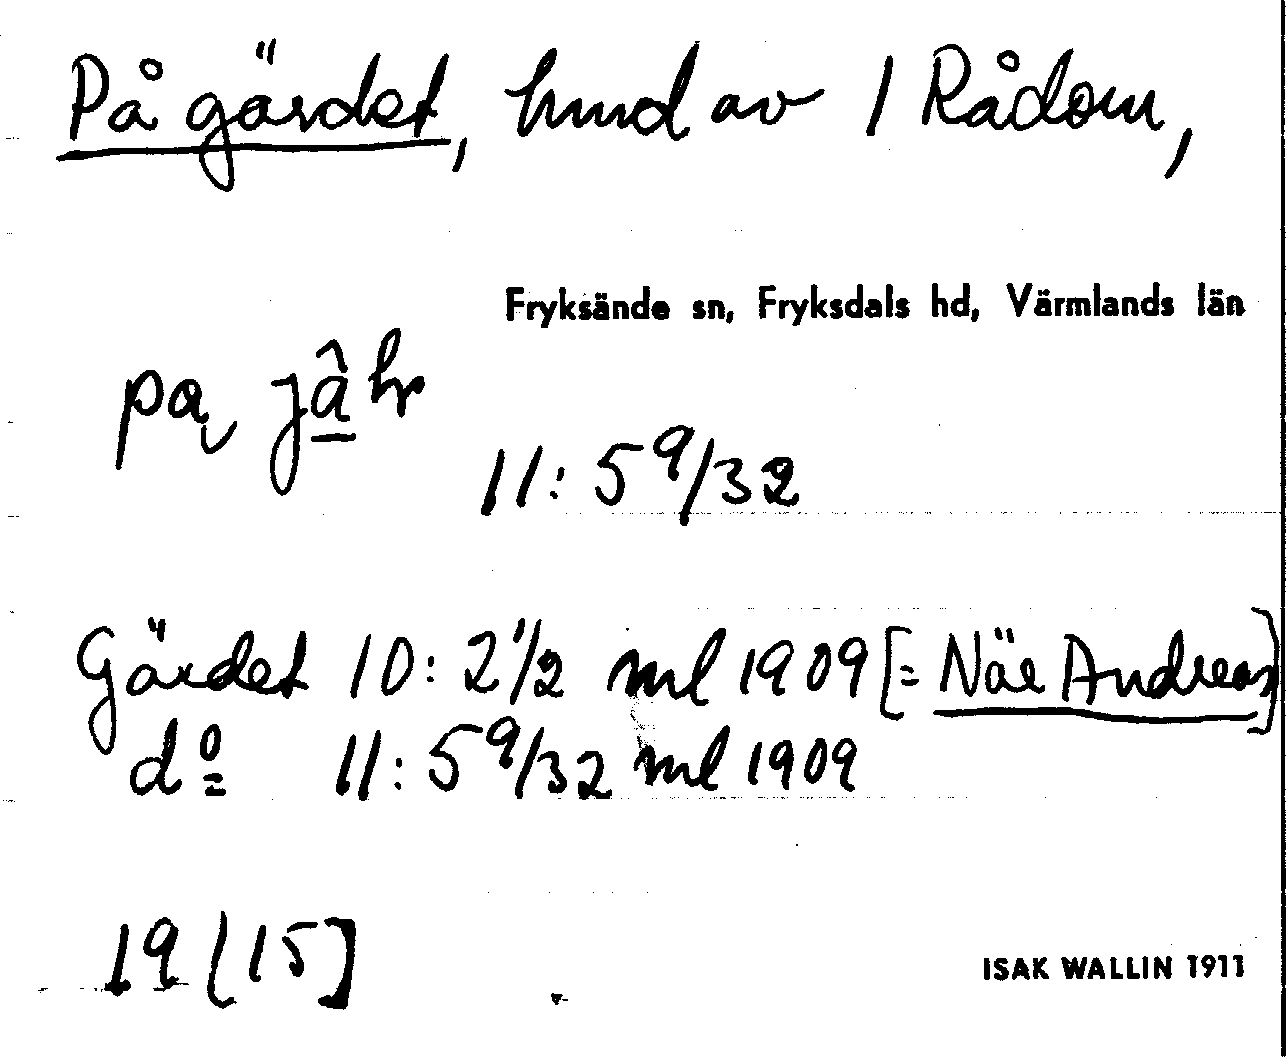 På gärdet, hmd av 1 Rådom,
Fryksände sn, Fryksdals hd, Värmlands län
pa
11: 5 9/32
Gärdet 10: 2 1/2 ml 1909 [= När Andreas]
do 11: 5 9/32 ml 1909
19 [15]
ISAK WALLIN 1911